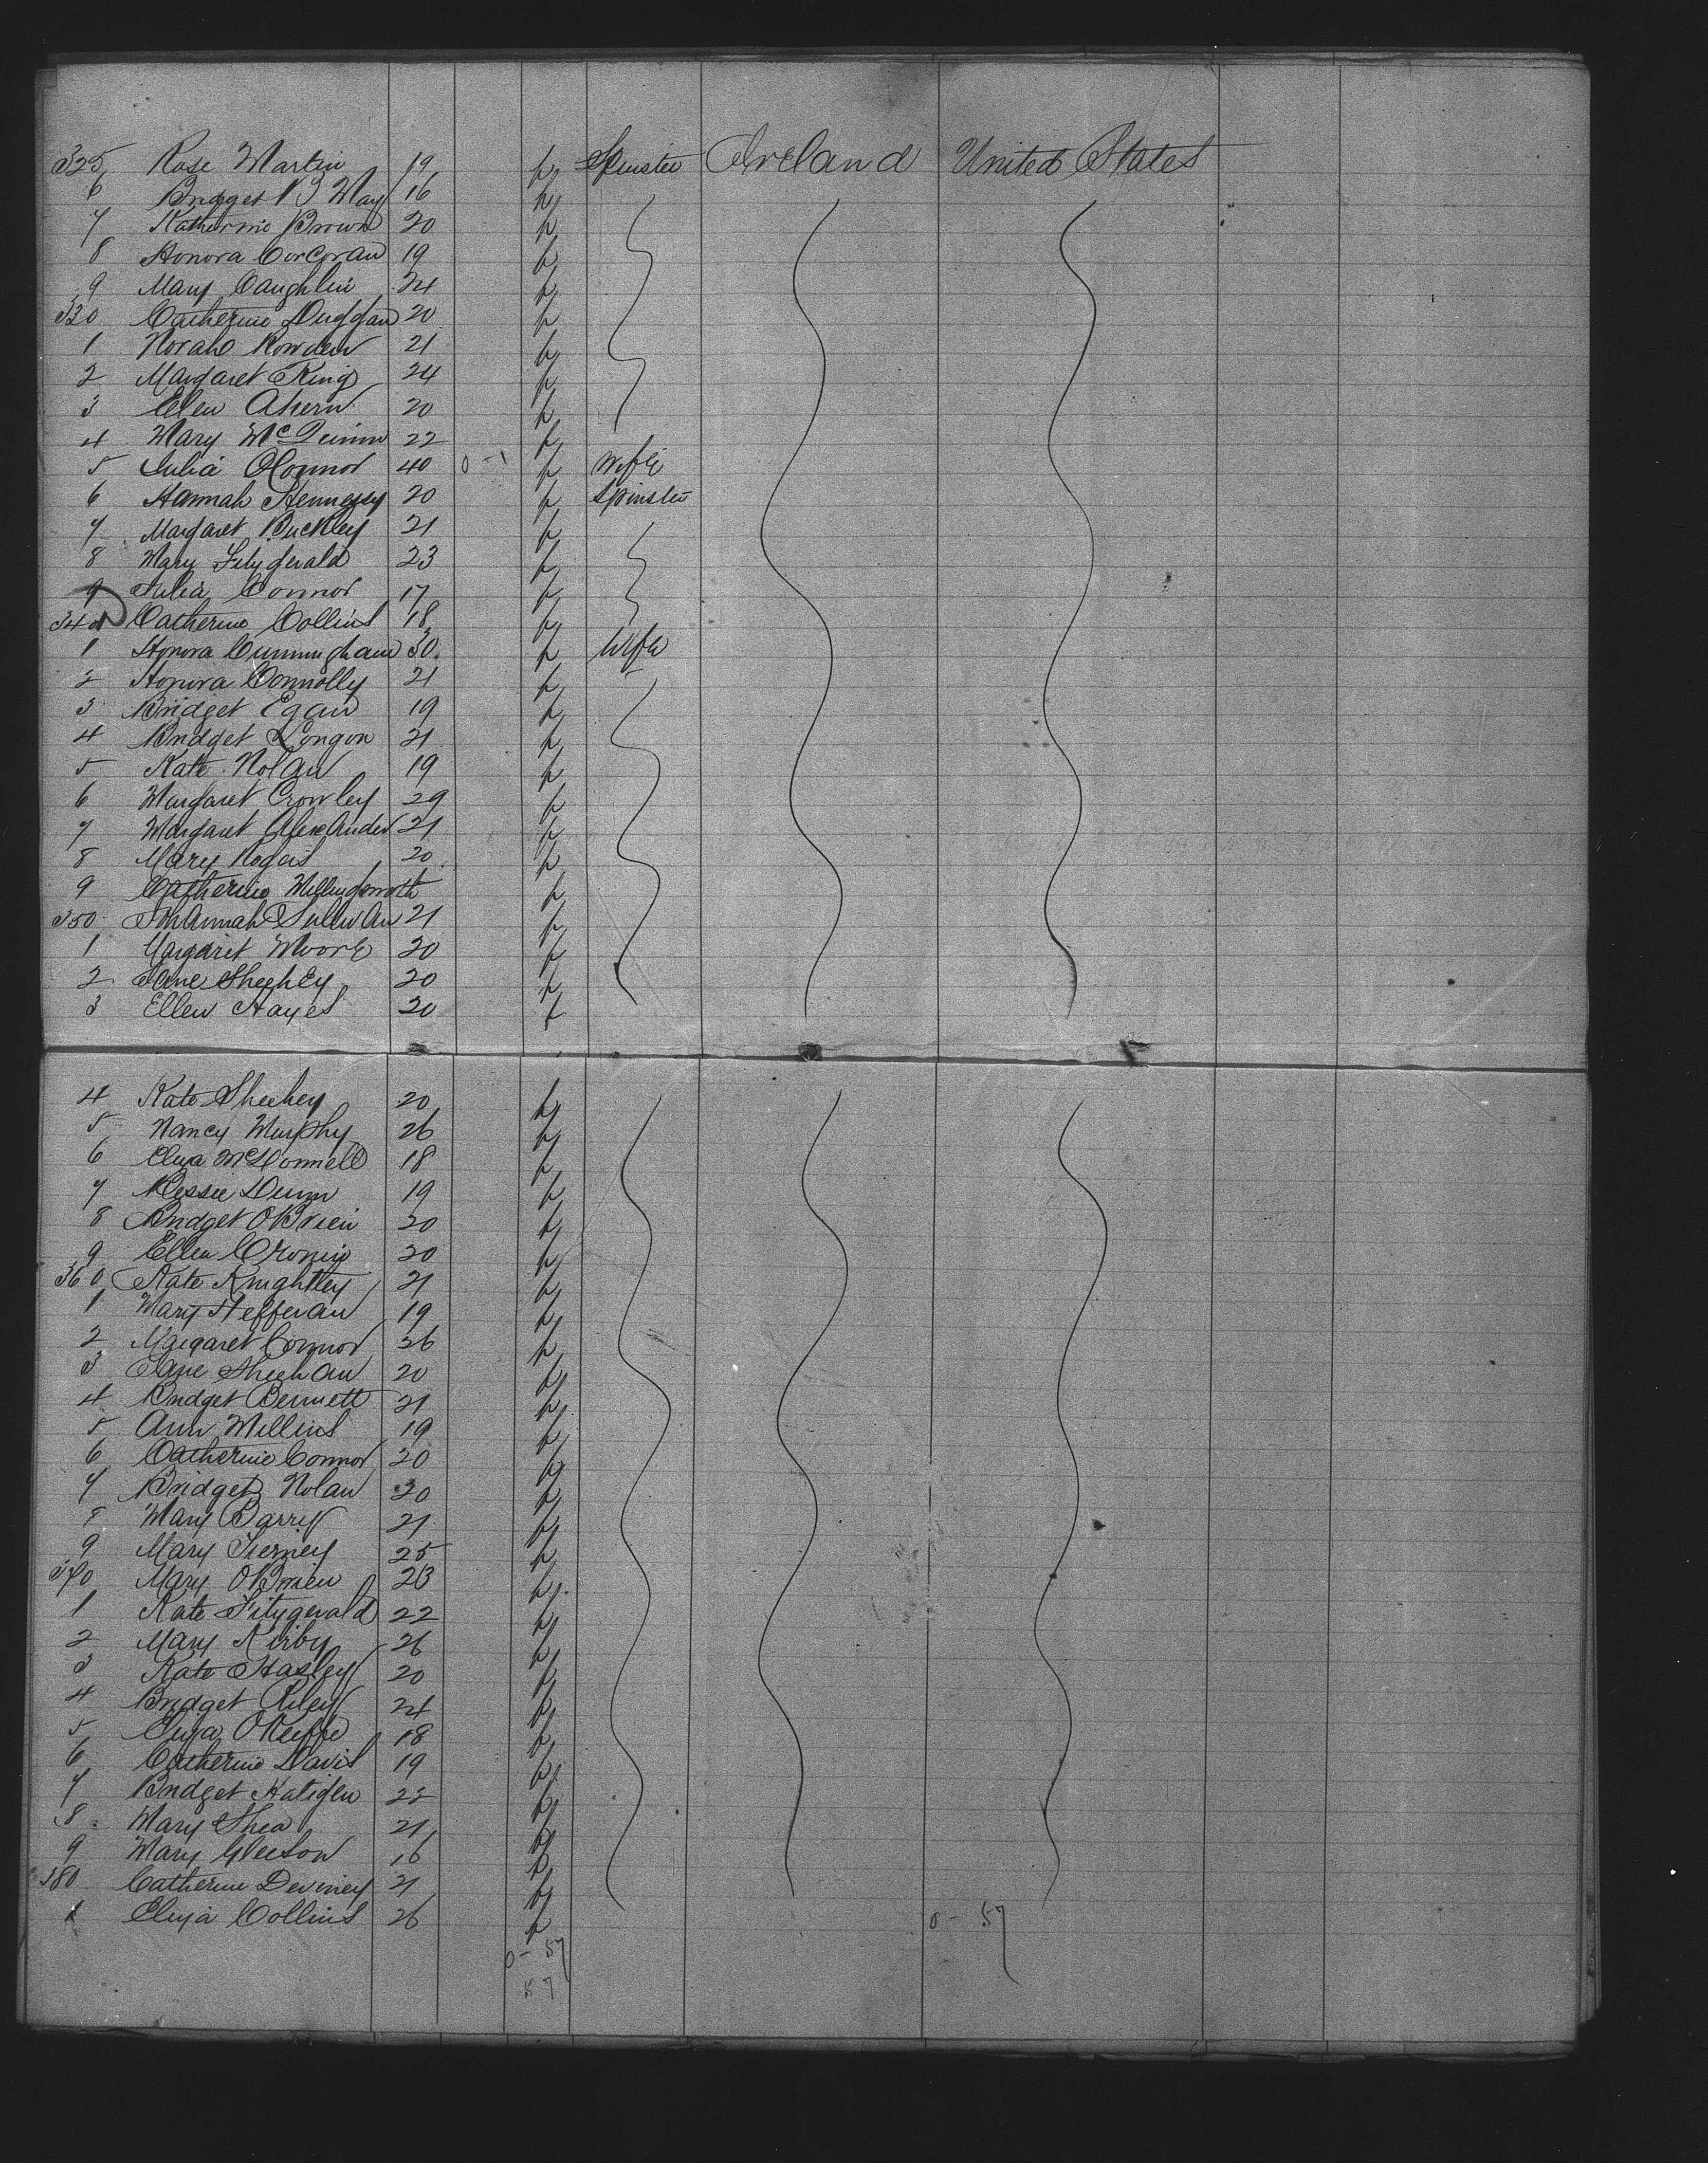 325 Rose Martin 19 f Spinster Ireland United States
6 Bridget May 16 f
7 Katherine Brown 20 f
8 Honora Corcoran 19 f
9 Mary Caughlin 24 f
330 Catherine Duggan 20 f
1 Norah Rowden 21 f
2 Margaret King 24 f
3 Ellen Ahern 20 f
4 Mary McQuinn 22 f
5 Julia OConnor 40 0-1 f Wife
6 Hannah Hennessy 20 f Spinster
7 Margaret Buckley 21 f
8 Mary Fitzgerald 23 f
9 Julia Connor 17 f
340 Catherine Collins 18 f
1 Honora Cunningham 30 f Wife
2 Honora Connolly 21 f
3 Bridget Egan 19 f
4 Bridget Longon 21 f
5 Kate Nolan 19 f
6 Margaret Crowley 29 f
7 Margaret Alexander 21 f
8 Mary 20 f
9 Catherine f
350 Johannah Sullivan 21 f
1 Margaret Moore 20 f
2 Jane Sheehey 20 f
3 Ellen Hayes 20 f
4 Kate Sheehey 20 f
5 Nancy Murphy 26 f
6 Eliza McDonnell 18 f
7 Bessie Dunn 19 f
8 Bridget OBrien 20 f
9 Ellen Cronin 20 f
360 Kate Knightley 21 f
1 Mary Heffernan 19 f
2 Margaret Connor 26 f
3 Jane Sheehan 20 f
4 Bridget Bennett 21 f
5 Ann Millins 19 f
6 Catherine Connor 20 f
7 Bridget Nolan 20 f
8 Mary Barry 21 f
9 Mary Tierney 25 f
370 Mary OBrien 23 f
1 Kate Fitzgerald 22 f
2 Mary Kirby 26 f
3 Kate Hasley 20 f
4 Bridget Riley 24 f
5 Eliza OKeeffe 18 f
6 Catherine Davis 19 f
7 Bridget 22 f
8 Mary Shea 21 f
9 Mary Gleeson 16 f
380 Catherine Deviney 21 f
1 Eliza Collins 26 f
0-57 0-57
57